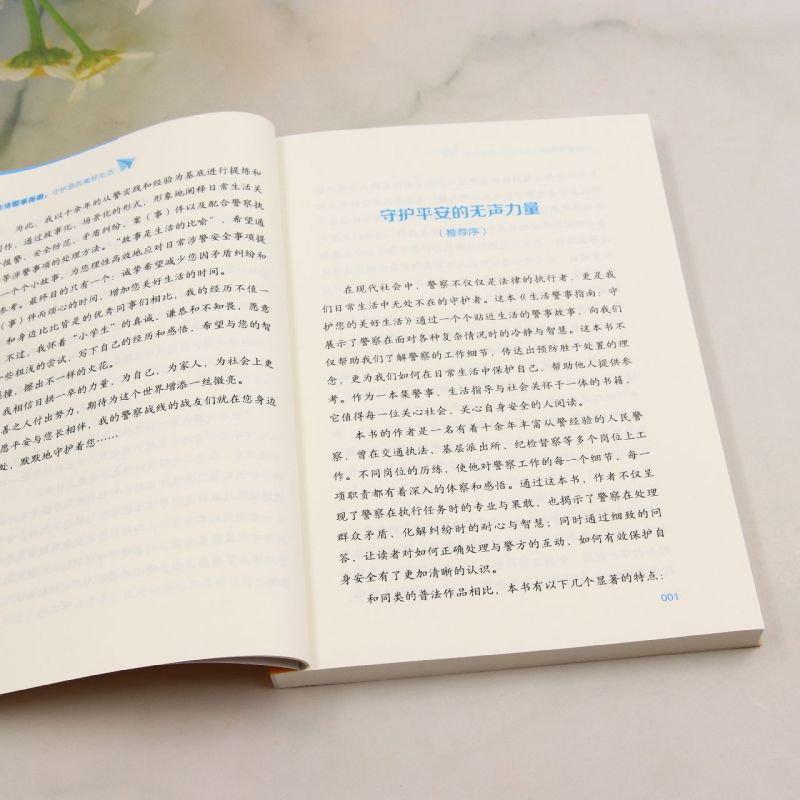 生活警事指南：守护您的美好生活
为此，我以十余年的从警实践和经验为基底进行提炼和
创作，通过故事化、场景化的形式，形象地阐释日常生活关
报警、安全防范、矛盾纠纷、案（事）件以及配合警察执
等涉警事项的处理方法。“故事是生活的比喻”，希望通
一个个小故事，为您理性高效地应对日常涉警安全事项提
参考。最终目的只有一个，诚挚希望减少您因矛盾纠纷和
（事）件而烦心的时间，增加您美好生活的时间。
和身边比比皆是的优秀同事们相比，我的经历不值一
不过，我怀着“小学生”的真诚、谦恭和不知畏，愿意
一些粗浅的尝试，写下自己的经历和感悟，希望与您的智
撞，擦出不一样的火花。
我相信日拱一卒的力量，为自己，为家人，为社会上更
善之人付出努力，期待为这个世界增添一丝微亮。
愿平安与您长相伴，我的警察战线的战友们就在您身边
处，默默地守护着您……
守护平安的无声力量
（推荐序）
在现代社会中，警察不仅仅是法律的执行者，更是我
们日常生活中无处不在的守护者。这本《生活警事指南：守
护您的美好生活》通过一个个贴近生活的警事故事，向我们
展示了警察在面对各种复杂情况时的冷静与智慧。这本书不
仅帮助我们了解警察的工作细节，传达出预防胜于处置的理
念，更为我们如何在日常生活中保护自己、帮助他人提供参
考。作为一本集警事、生活指导与社会关怀于一体的书籍，
它值得每一位关心社会、关心自身安全的人阅读。
本书的作者是一名有着十余年丰富从警经验的人民警
察，曾在交通执法、基层派出所、纪检督察等多个岗位上工
作。不同岗位的历练，使他对警察工作的每一个细节、每一
项职责都有着深入的体察和感悟。通过这本书，作者不仅呈
现了警察在执行任务时的专业与果敢，也揭示了警察在处理
群众矛盾、化解纠纷时的耐心与智慧；同时通过细致的问
答，让读者对如何正确处理与警方的互动、如何有效保护自
身安全有了更加清晰的认识。
和同类的普法作品相比，本书有以下几个显著的特点：
001